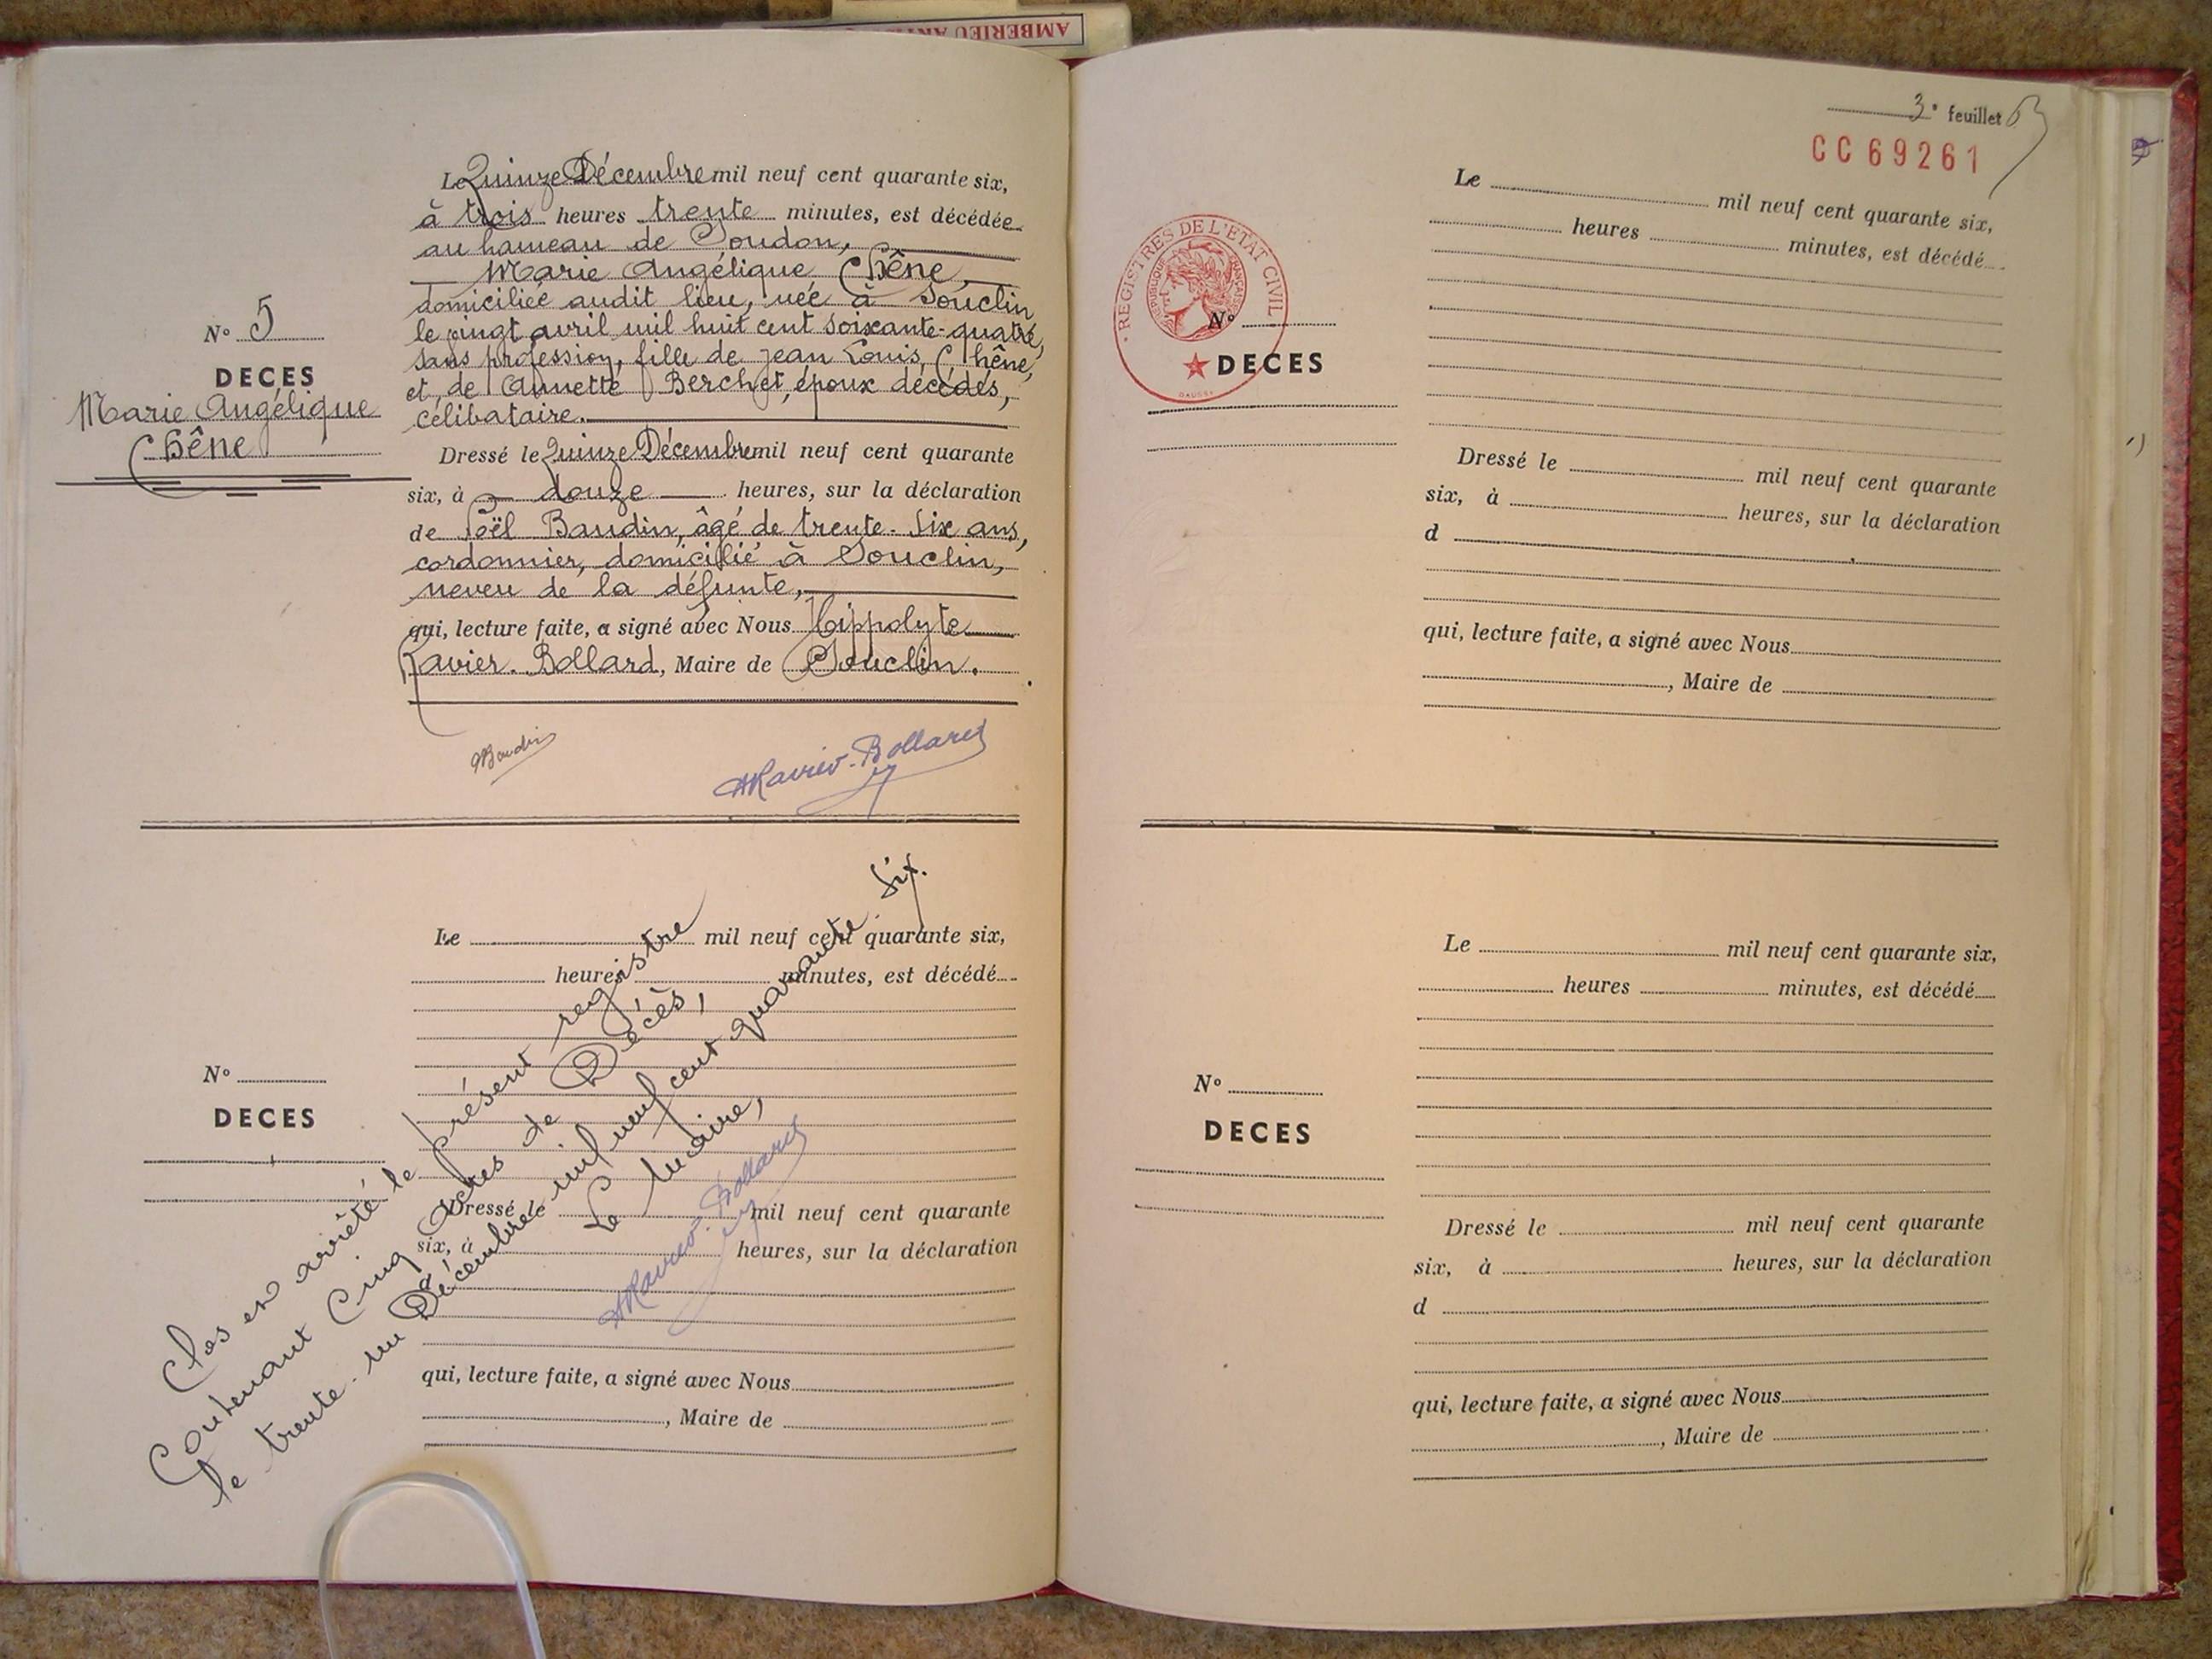 AMBERIEU
N° 5
DECES
Marie Angélique
Chêne
Le Quinze Décembre mil neuf cent quarante six,
à trois heures trente minutes, est décédée
au hameau de Soudon,
Marie Angélique Chêne,
domiciliée audit lieu, née à Souclin
le vingt avril mil huit cent soixante-quatre,
sans profession, fille de Jean Louis Chêne,
et de Annette Berchet, époux décédés,
célibataire.
Dressé le Quinze Décembre mil neuf cent quarante
six, à douze heures, sur la déclaration
de Noël Baudin, âgé de trente-six ans,
cordonnier, domicilié à Souclin,
neveu de la défunte,
qui, lecture faite, a signé avec Nous Hippolyte
Ravier-Bollard, Maire de Souclin.
NBaudin
HRavier-Bollard
N°
DECES
Le mil neuf cent quarante six,
heures minutes, est décédé
Dressé le mil neuf cent quarante
six, à heures, sur la déclaration
qui, lecture faite, a signé avec Nous
, Maire de
Clos et arrêté le présent registre
Contenant Cinq Actes de Décès,
le trente-un Décembre mil neuf cent quarante-six.
Le Maire,
HRavier-Bollard
3e feuillet
CC69261
REGISTRES DE L'ETAT CIVIL
REPUBLIQUE FRANÇAISE
N°
DECES
Le mil neuf cent quarante six,
heures minutes, est décédé
Dressé le mil neuf cent quarante
six, à heures, sur la déclaration
d
qui, lecture faite, a signé avec Nous
, Maire de
N°
DECES
Le mil neuf cent quarante six,
heures minutes, est décédé
Dressé le mil neuf cent quarante
six, à heures, sur la déclaration
d
qui, lecture faite, a signé avec Nous
, Maire de